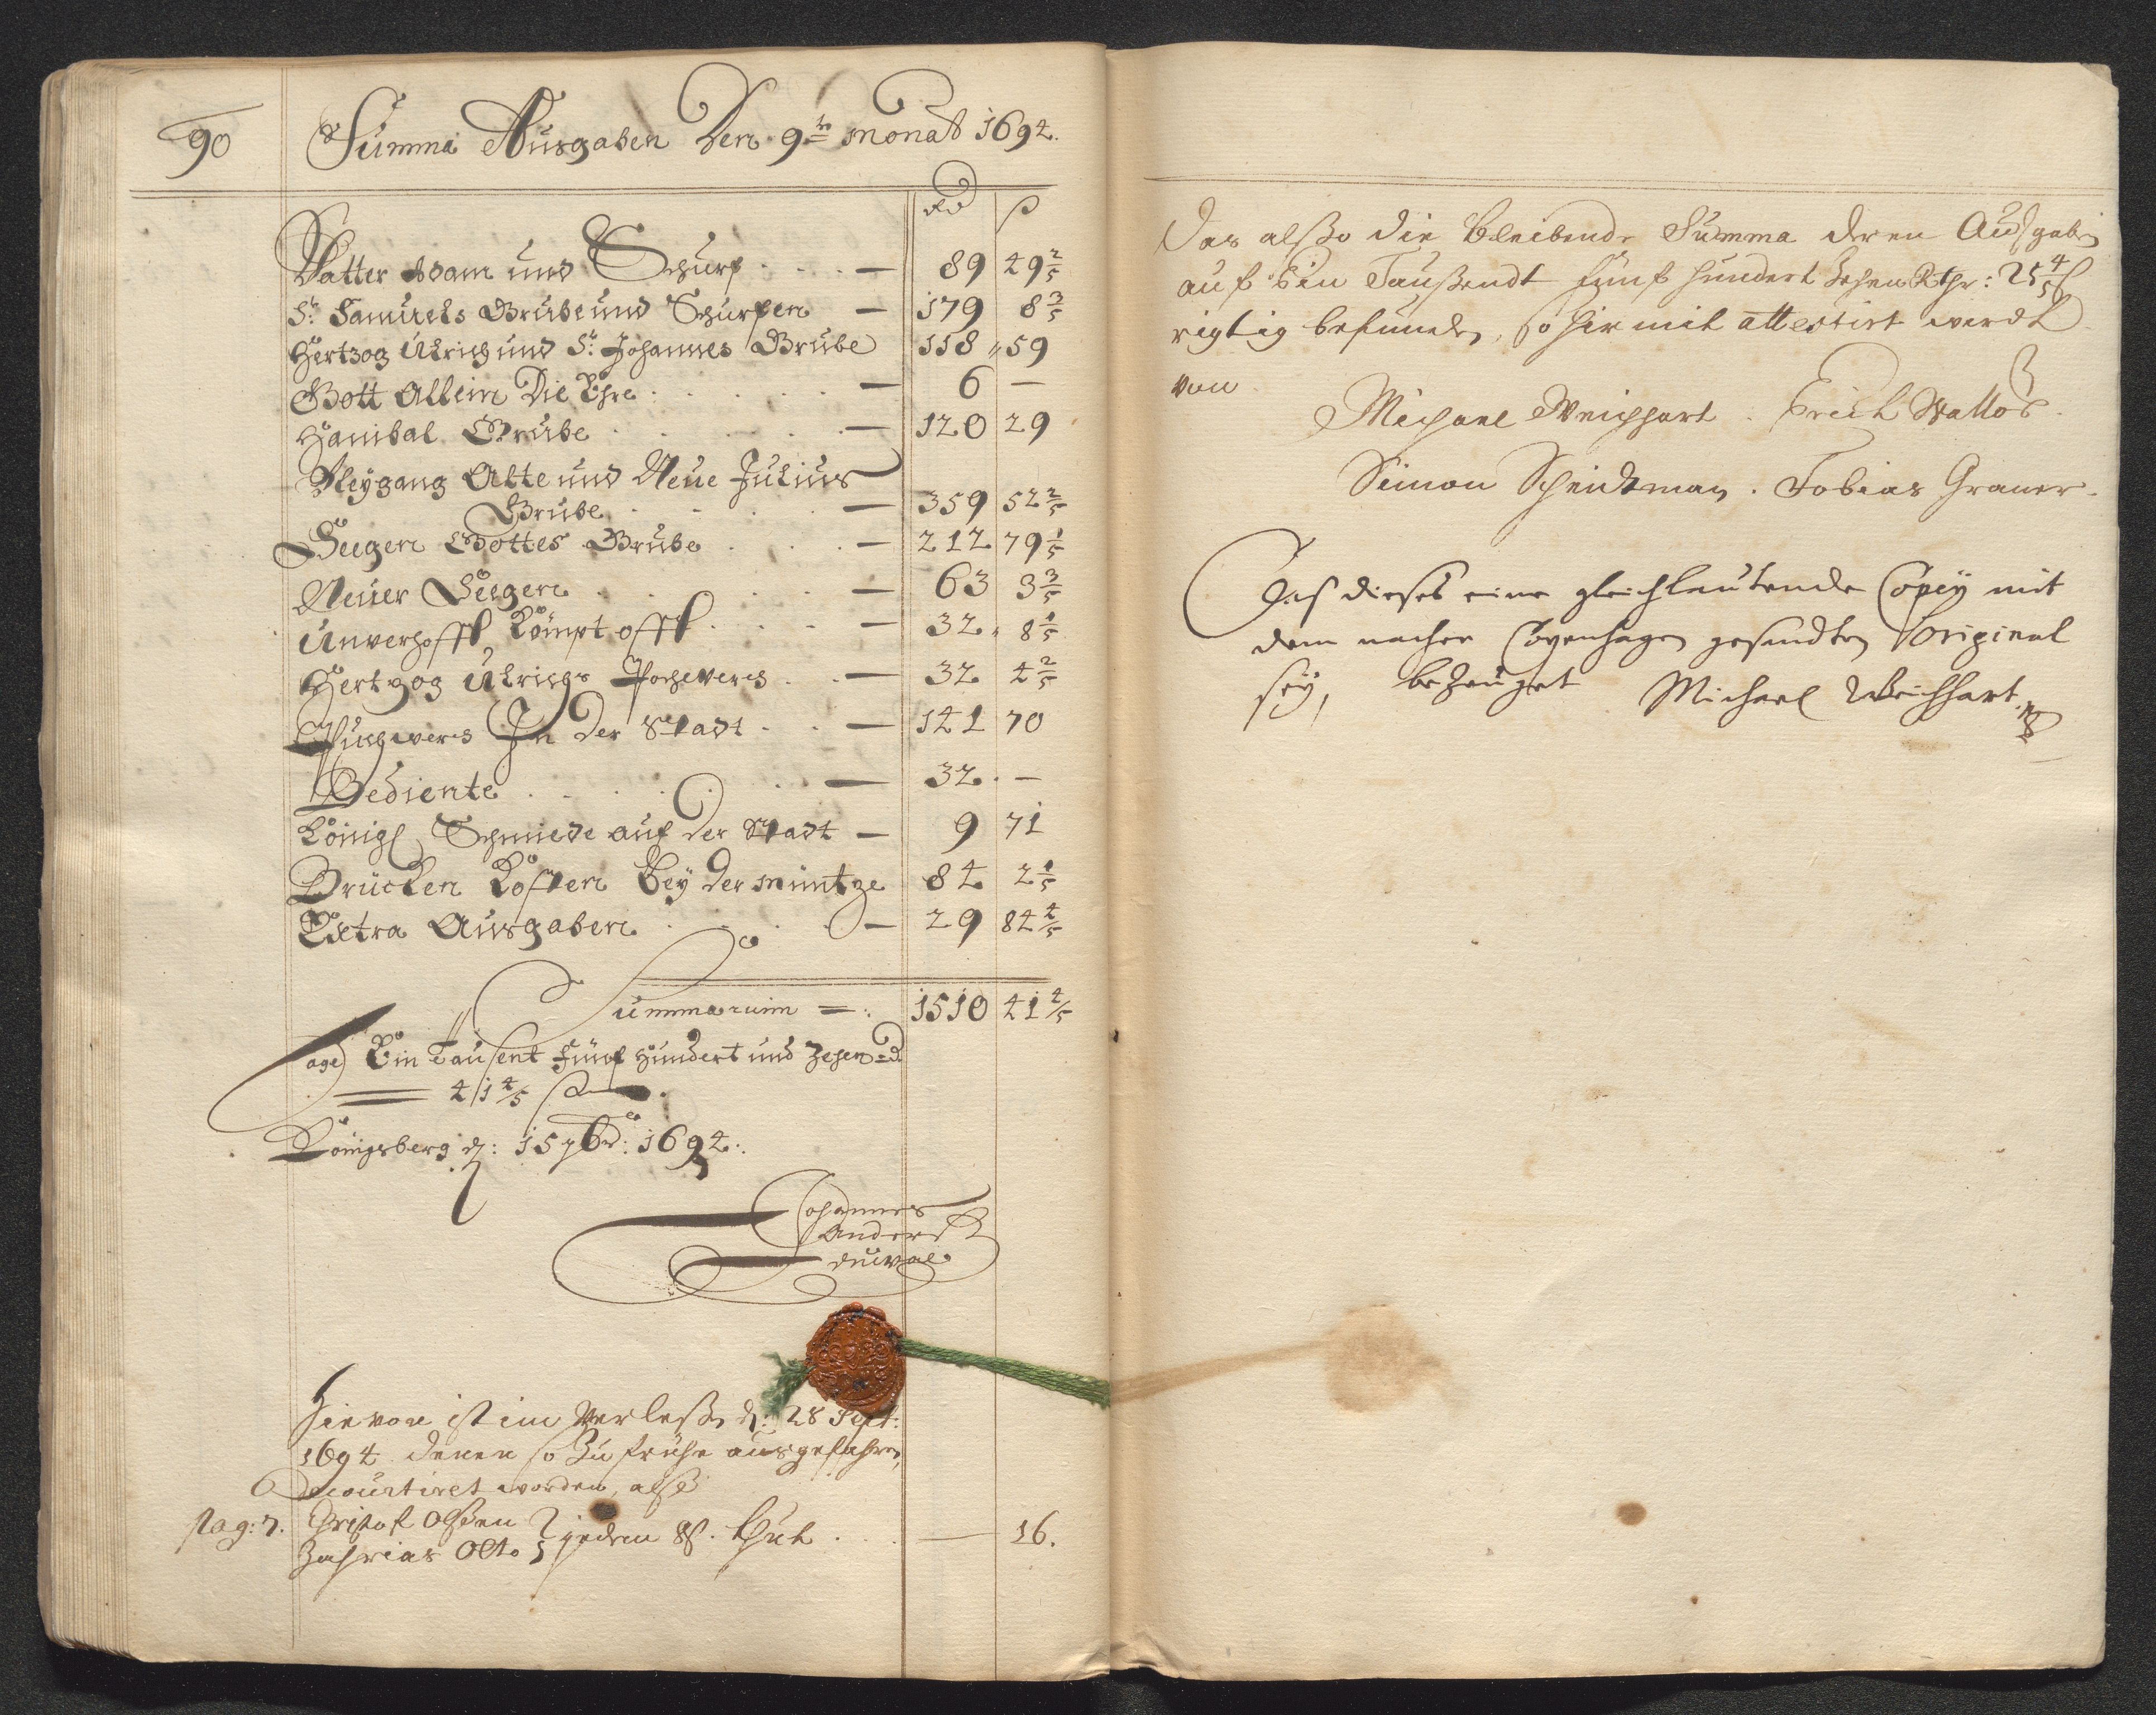 90
Summa Ausgaben Den 9tn monat 1694.
Rd ß
Vatter Adam und Schurf — 89 49 2/5
St: Samuels Grube und Schurfen — 179 8 3/5
Hertzog Ulrich und St: Johannes Grube 118 „ 59
Gott Allein Die Ehre: — 6 —
Hanibal Grube — 120 29
Fleygang Alte und Neue Julius
Grube — 359 52 2/5
Seegen Gottes Grube — 212 79 1/5
Neuer Seegen — 63 3 3/5
Unverhofft Kömpt offt — 32 „ 8 1/5
Hertzog Ulrichs Pochwerch — 32 4 2/5
Puchwerch In Der Stadt — 141 70
Bediente — 32 . —
Königl Schmiede auf der Stadt — 9 71
Brücken Kosten bey der müntze 84 2 1/5
Extra Ausgaben — 29 84 4/5
Summarum =: 1510 41 4/5
Sage Ein Tausent Fünf Hundert und Zehen Rd
41 4/5 ß
Königsberg d: 15 7br: 1694.
Johannes
Anders
duwal
Hievon ist im Verleßen d: 28 Sept:
1694 denen so Zu frühe ausgefahren,
decourtiret worden, alß
pag: 7. Christof Olßen
Zachrias Olto } jedem 8 ß. thut — 16.
Das alßo die bleibende Summa deren Außgaben
auf Ein Taußendt fünf hundert Zehen Rthr: 25 4/5 ß
rigtig befunden, so hiermit attestirt werdt
von
Michael Weichhart. Erich Wallor.
Simon Scheidtman. Tobias Graner.
Daß dieses eine gleichlautende Copey mit
dem nacher Copenhagen gesandten Original
sey, bezeuget Michael Weichhart.